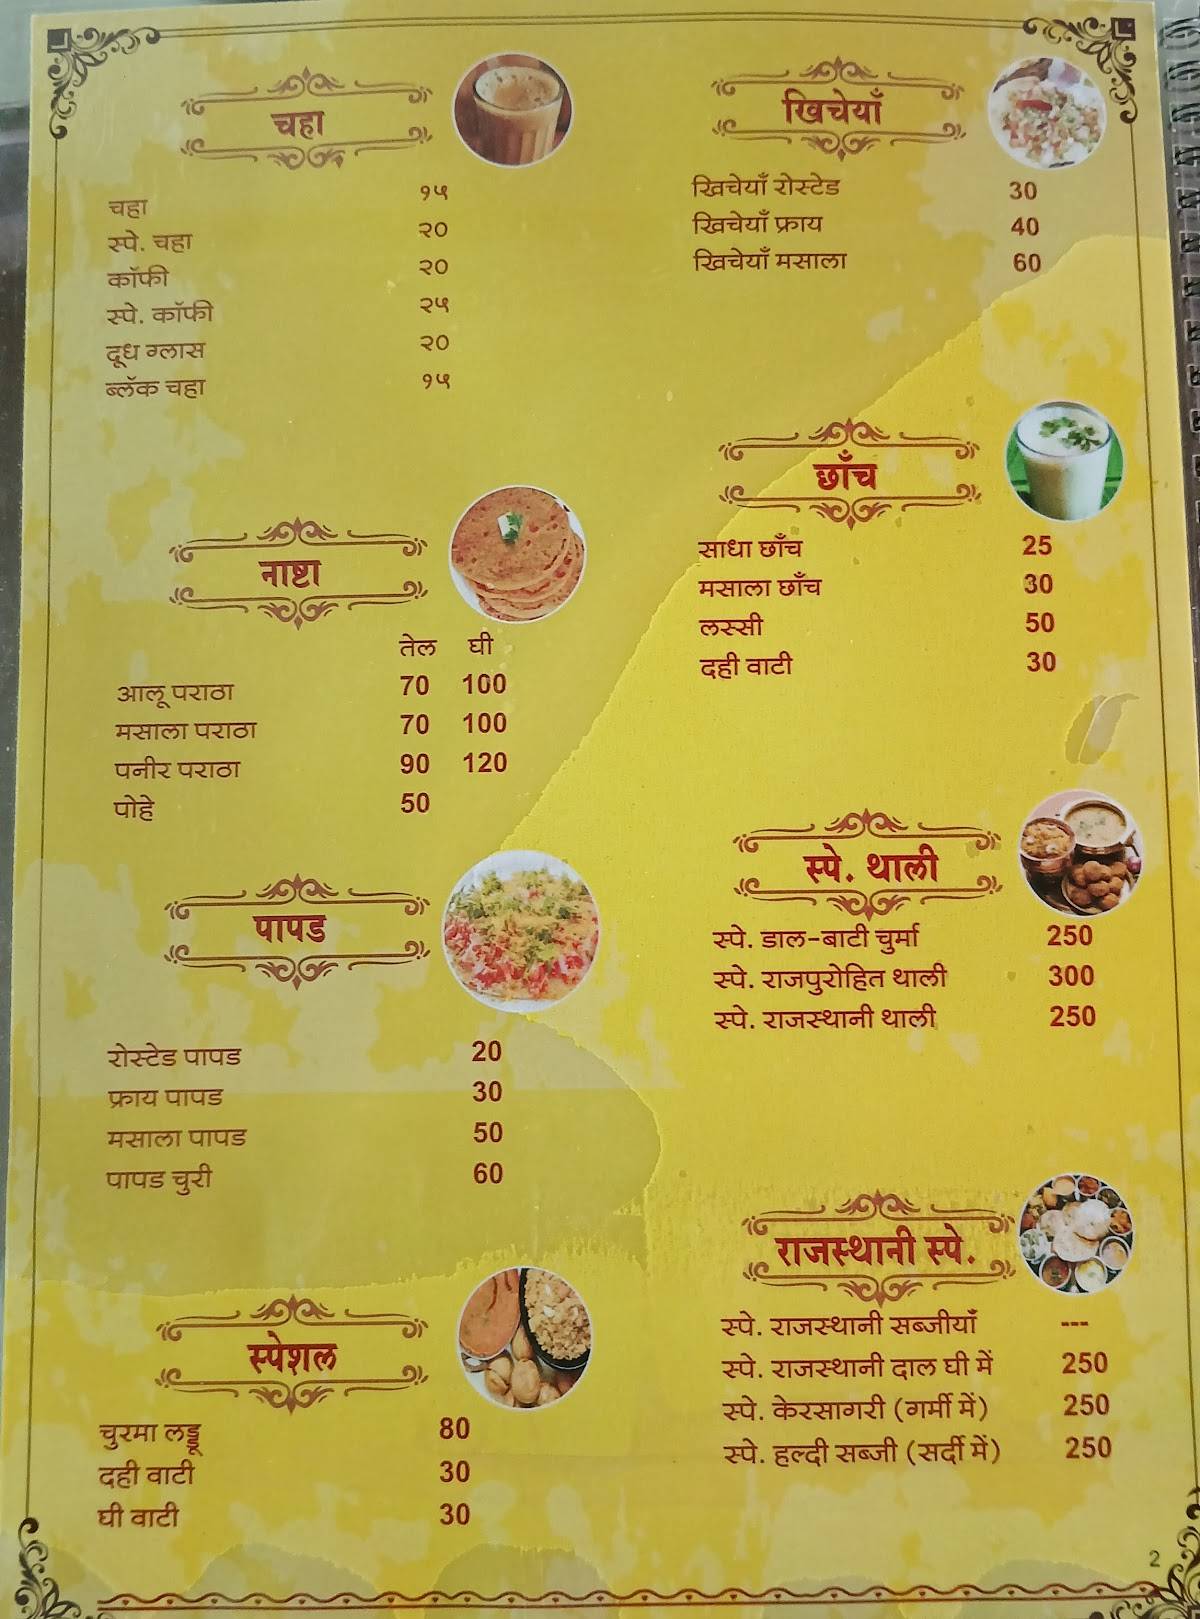 चहा
चहा १५
स्पे. चहा २०
कॉफी २०
स्पे. कॉफी २५
दूध ग्लास २०
ब्लॅक चहा १५
नाष्टा
तेल घी
आलू पराठा 70 100
मसाला पराठा 70 100
पनीर पराठा 90 120
पोहे 50
पापड
रोस्टेड पापड 20
फ्राय पापड 30
मसाला पापड 50
पापड चुरी 60
स्पेशल
चुरमा लड्डू 80
दही वाटी 30
घी वाटी 30
खिचेयाँ
खिचेयाँ रोस्टेड 30
खिचेयाँ फ्राय 40
खिचेयाँ मसाला 60
छाँच
साधा छाँच 25
मसाला छाँच 30
लस्सी 50
दही वाटी 30
स्पे. थाली
स्पे. डाल-बाटी चुर्मा 250
स्पे. राजपुरोहित थाली 300
स्पे. राजस्थानी थाली 250
राजस्थानी स्पे.
स्पे. राजस्थानी सब्जीयाँ ---
स्पे. राजस्थानी दाल घी में 250
स्पे. केरसागरी (गर्मी में) 250
स्पे. हल्दी सब्जी (सर्दी में) 250
2